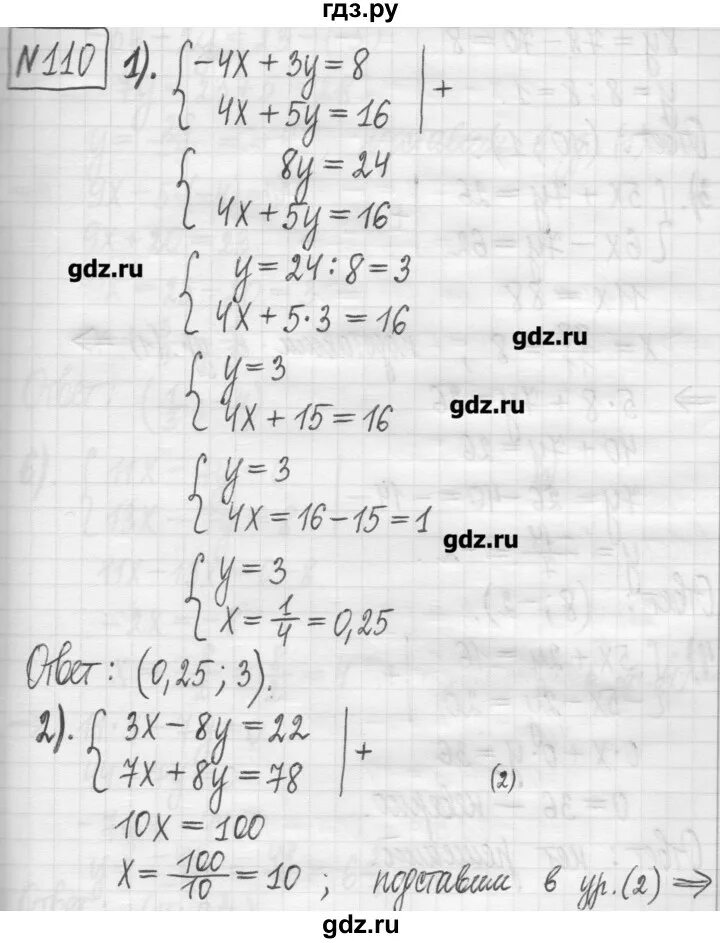 гдз.ру
№110 1). { -4x + 3y = 8 | +
4x + 5y = 16
{ 8y = 24
4x + 5y = 16
gdz.ru
{ y = 24 : 8 = 3
4x + 5·3 = 16
gdz.ru
{ y = 3
4x + 15 = 16
gdz.ru
{ y = 3
4x = 16 - 15 = 1
gdz.ru
{ y = 3
x = 1/4 = 0,25
Ответ: (0,25; 3).
2). { 3x - 8y = 22 | +
7x + 8y = 78
(2)
10x = 100
x = 100/10 = 10 ; подставим в ур. (2) ⇒
gdz.ru